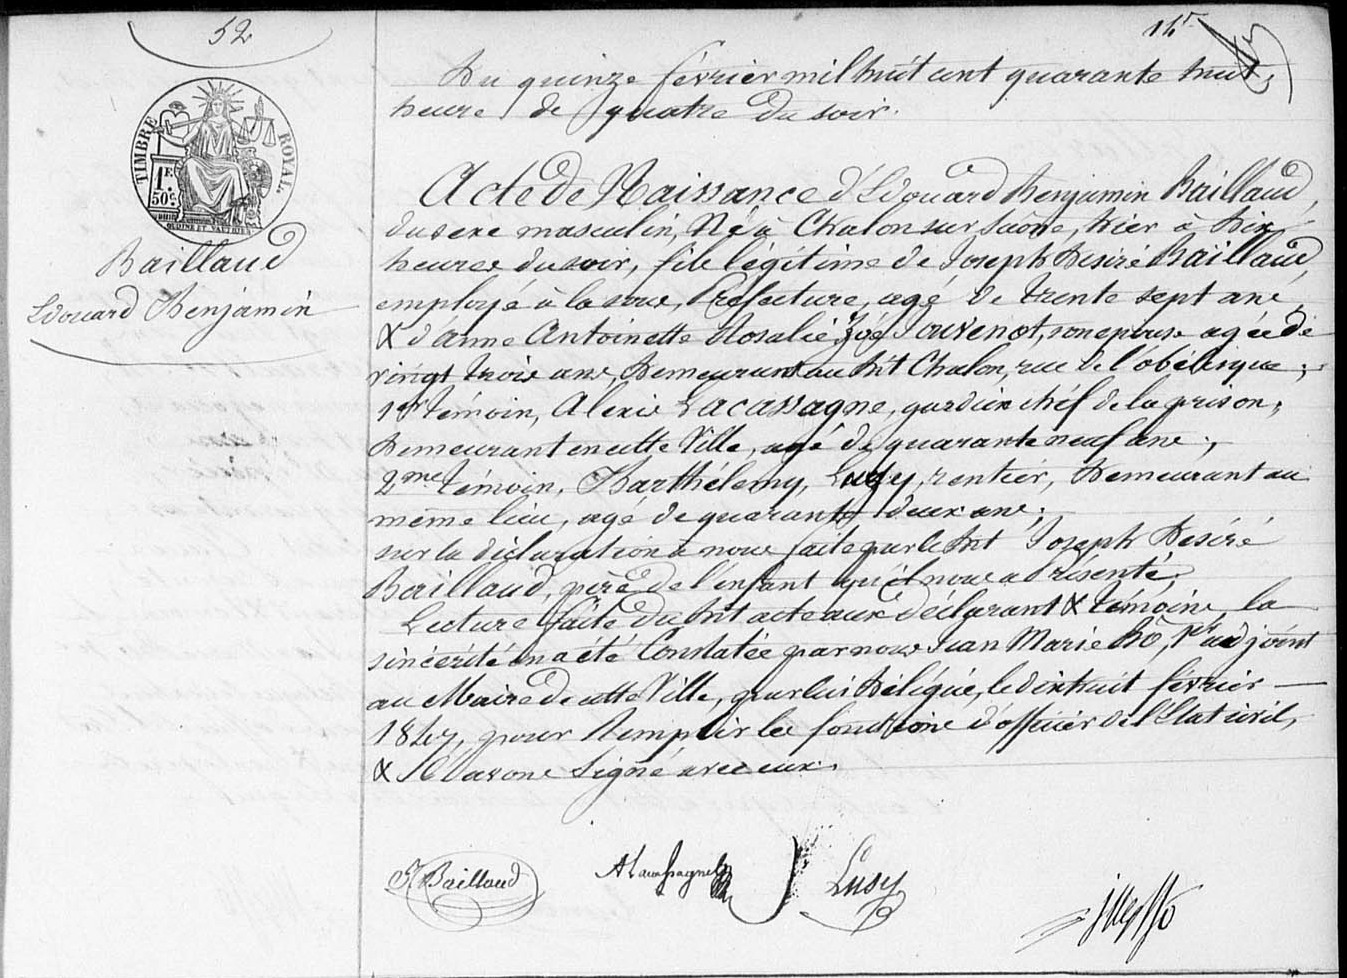 52
14r
Du quinze février mil huit cent quarante huit,
heure de quatre du soir.
TIMBRE ROYAL
1F.
50c.
Baillaud
Edouard Benjamin
Acte de Naissance d'Edouard Benjamin Baillaud,
du sexe masculin, Né à Chalon sur Saône, hier à Dix
heures du soir, fils légitime de Joseph Desiré Baillaud,
employé à la sous Préfecture, agé de trente sept ans,
& d'anne Antoinette Rosalie Zoé Jouvenot, son epouse agée de
vingt trois ans, Demeurant au dit Chalon, rue de l'obélisque;
1er témoin, Alexis Lacassagne, gardien chéf de la prison,
Demeurant en cette Ville, agé de quarante neuf ans;
2me témoin, Barthélemy, Lusy, rentier, Demeurant au
même lieu, agé de quarante deux ans;
sur la déclaration à nous faite par le dit Joseph Desiré
Baillaud, père de l'enfant qu'il nous a présenté,
Lecture faite du dit acte aux déclarant & témoins, la
sincérité en a été Constatée par nous Jean Marie 1er adjoint
au Maire de cette Ville, par lui Délégué, le dixhuit février
1847, pour Remplir les fonctions d'officier de l'Etat civil,
& Nous avons signé avec eux.
J Baillaud
A Lacassagne
Lusy